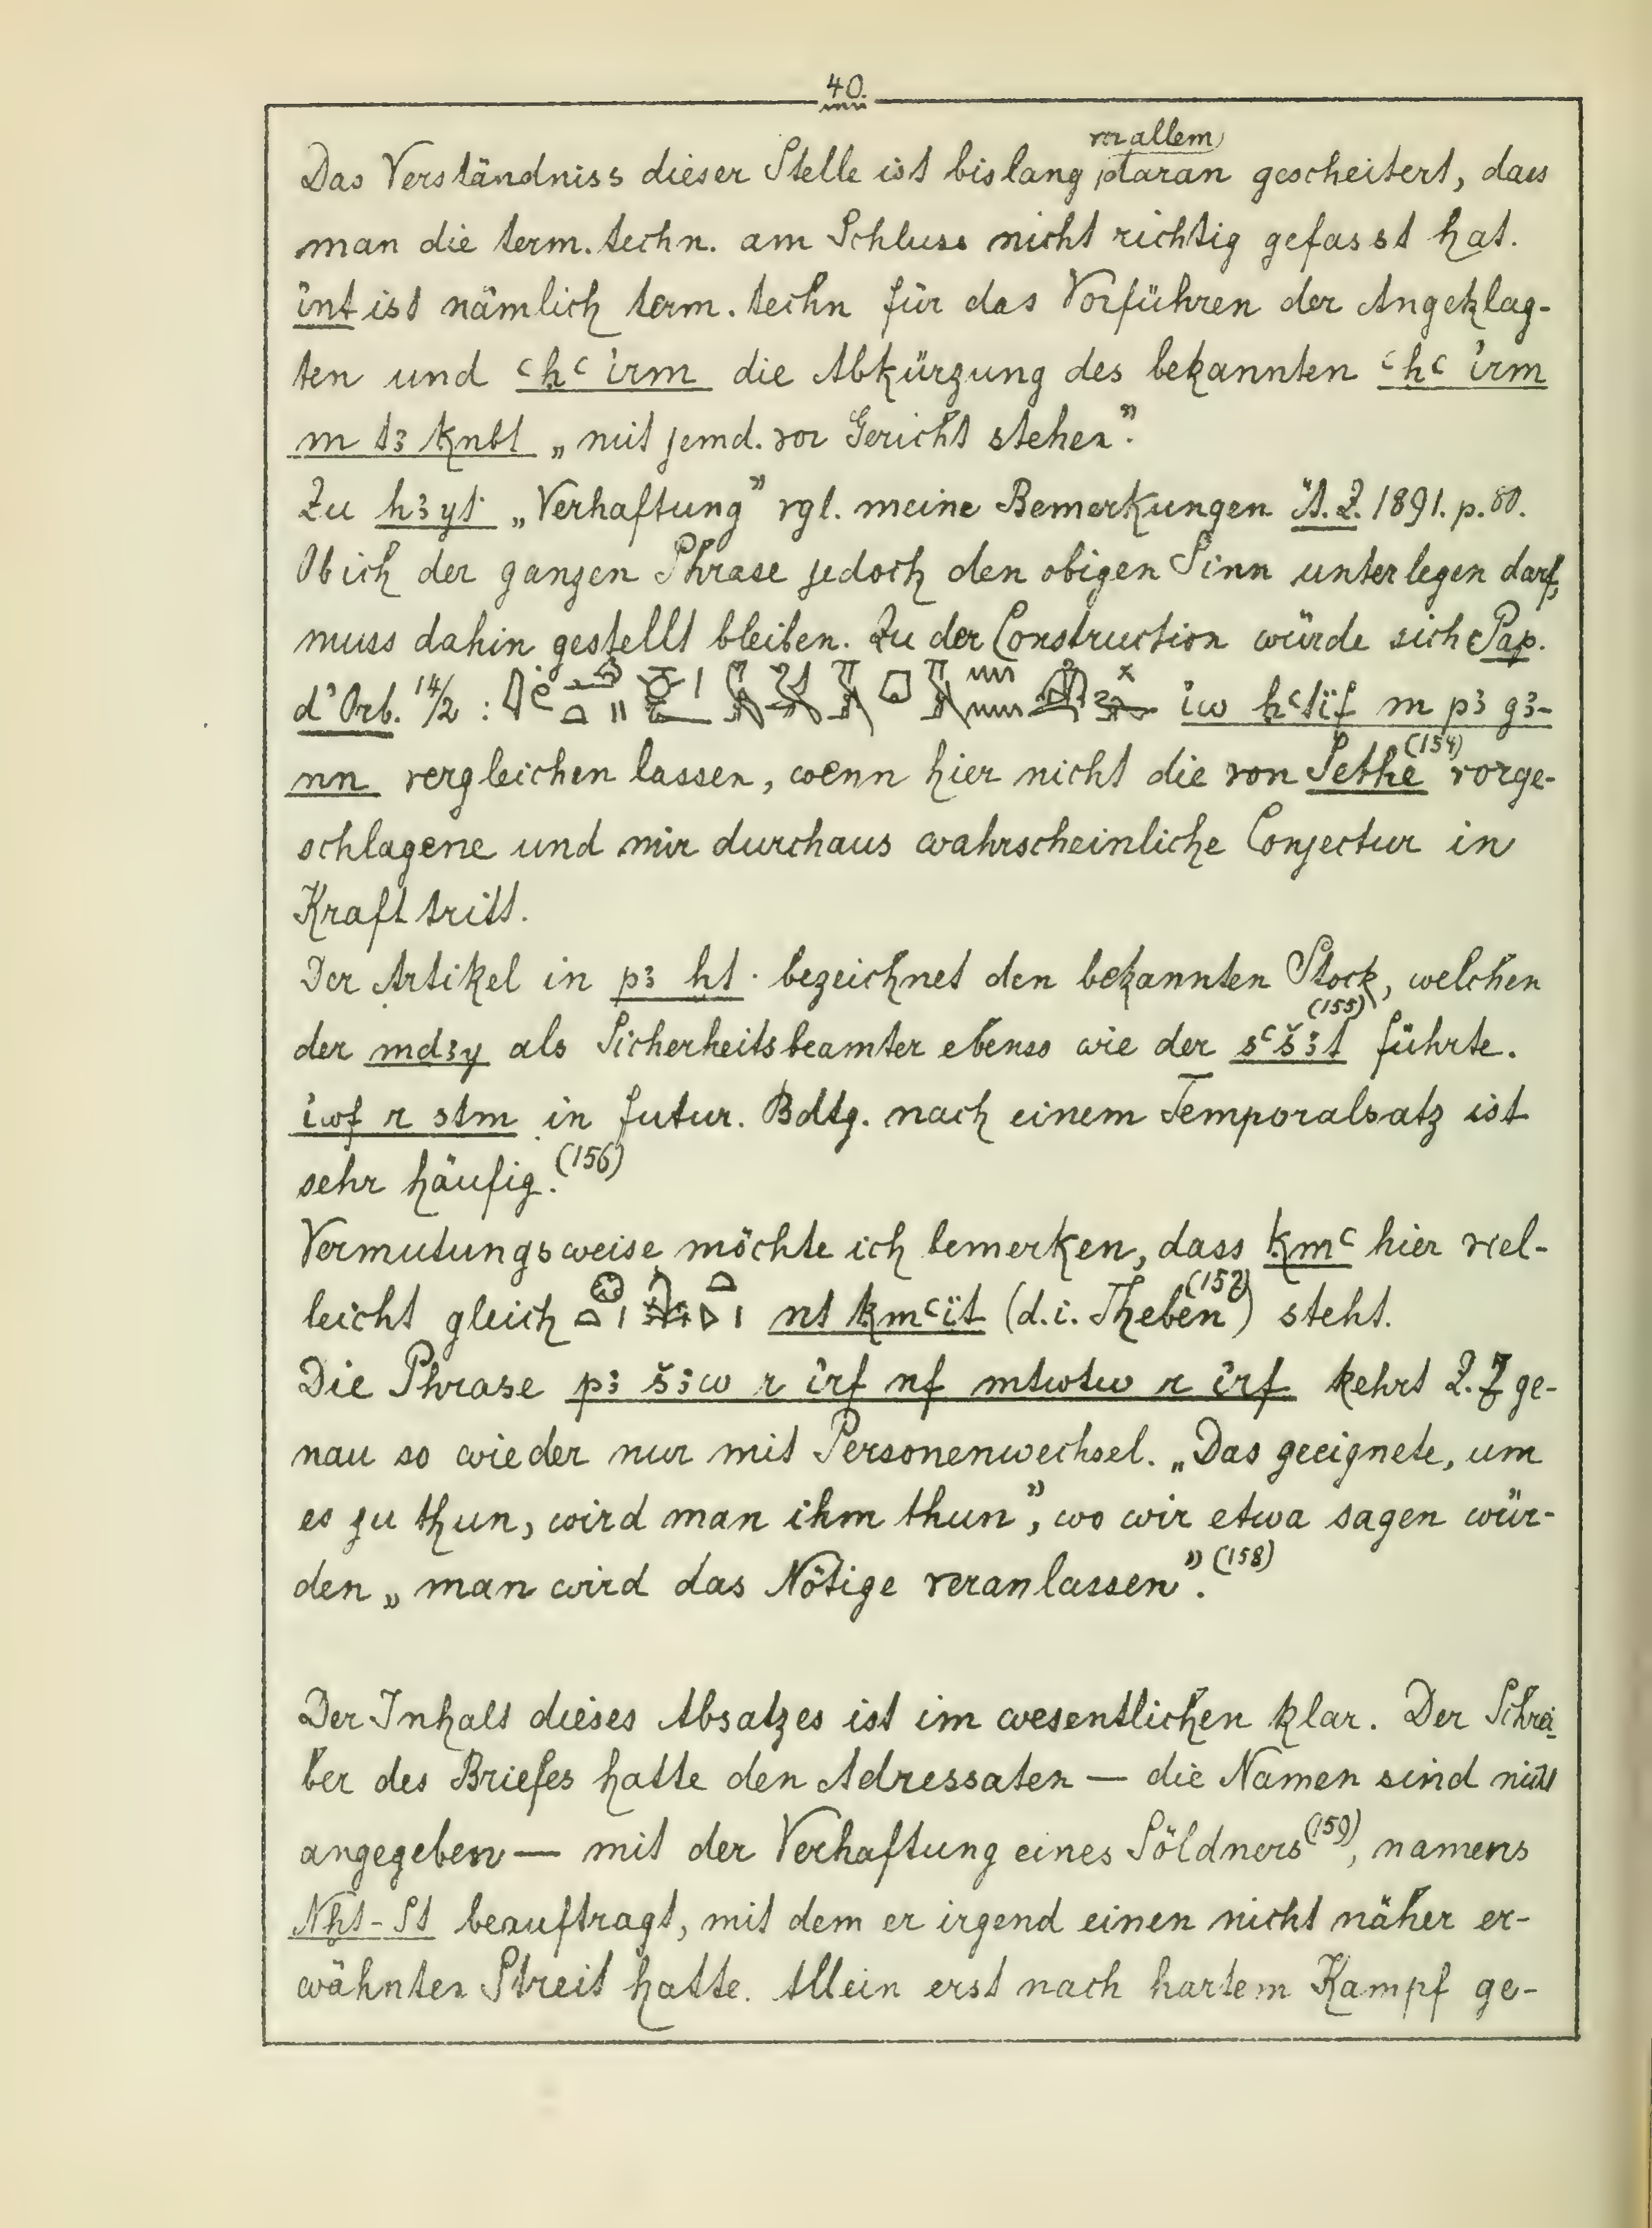 40.
Das Verständniss dieser Stelle ist bislang vor allem daran gescheitert, dass
man die term. techn. am Schluss nicht richtig gefasst hat.
int ist nämlich term. techn für das Vorführen der Angeklag-
ten und ꜥḥꜥ irm die Abkürzung des bekannten ꜥḥꜥ irm
m tꜣ ḳnbt „mit jemd. vor Gericht stehen”.
Zu hꜣyt „Verhaftung” vgl. meine Bemerkungen Ä.Z. 1891. p. 80.
Ob ich der ganzen Phrase jedoch den obigen Sinn unterlegen darf,
muss dahin gestellt bleiben. Zu der Construction würde sich Pap.
d'Orb. 14/2 : iw ḥꜥtif m pꜣ gꜣ-
nn vergleichen lassen, wenn hier nicht die von Sethe (154) vorge-
schlagene und mir durchaus wahrscheinliche Conjectur in
Kraft tritt.
Der Artikel in pꜣ ḫt bezeichnet den bekannten Stock, welchen
der mdꜣy als Sicherheitsbeamter ebenso wie der sꜥšꜣt (155) führte.
iwf r stm in futur. Bdtg. nach einem Temporalsatz ist
sehr häufig. (156)
Vermutungsweise möchte ich bemerken, dass ḳmꜥ hier viel-
leicht gleich nt ḳmꜥït (d.i. Theben (157)) steht.
Die Phrase pꜣ šꜣw r irf nf mtwtw r irf kehrt 2.7 ge-
nau so wieder nur mit Personenwechsel. „Das geeignete, um
es zu thun, wird man ihm thun”, wo wir etwa sagen wür-
den „man wird das Nötige veranlassen”. (158)
Der Inhalt dieses Absatzes ist im wesentlichen klar. Der Schrei-
ber des Briefes hatte den Adressaten — die Namen sind nicht
angegeben — mit der Verhaftung eines Söldners (159), namens
Nḫt-St beauftragt, mit dem er irgend einen nicht näher er-
wähnten Streit hatte. Allein erst nach hartem Kampf ge-